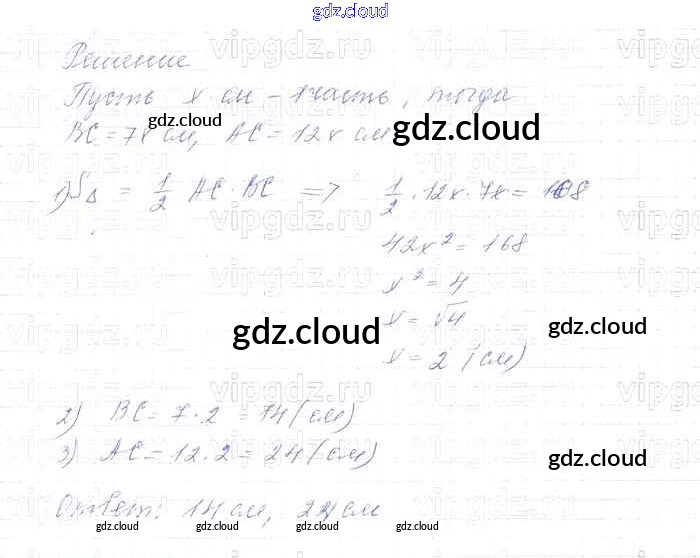 gdz.cloud
Решение
Пусть x см - 1 часть, тогда
BC = 7x см, AC = 12x см
gdz.cloud
gdz.cloud
1) S△ = 1/2 AC · BC => 1/2 · 12x · 7x = 168
42x² = 168
x² = 4
x = √4
gdz.cloud
gdz.cloud
x = 2 (см)
2) BC = 7 · 2 = 14 (см)
3) AC = 12 · 2 = 24 (см)
gdz.cloud
Ответ: 14 см, 24 см
gdz.cloud
gdz.cloud
gdz.cloud